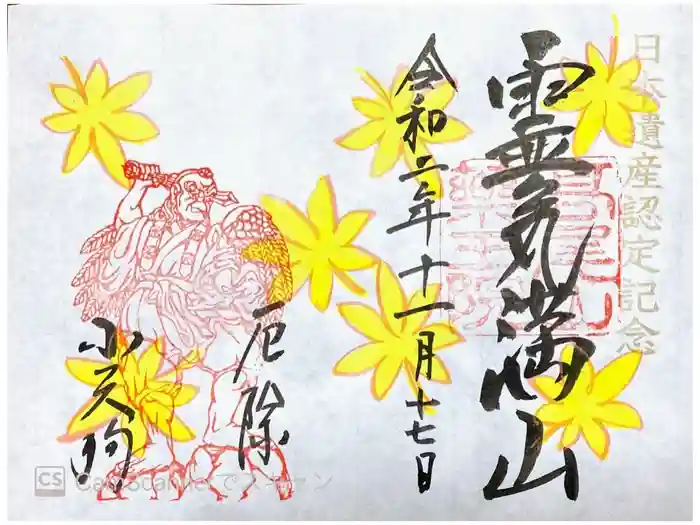 日本遺産認定記念
霊気満山
高尾山
薬王院
令和二年十一月十七日
厄除
小天狗
CS CamScannerでスキャン